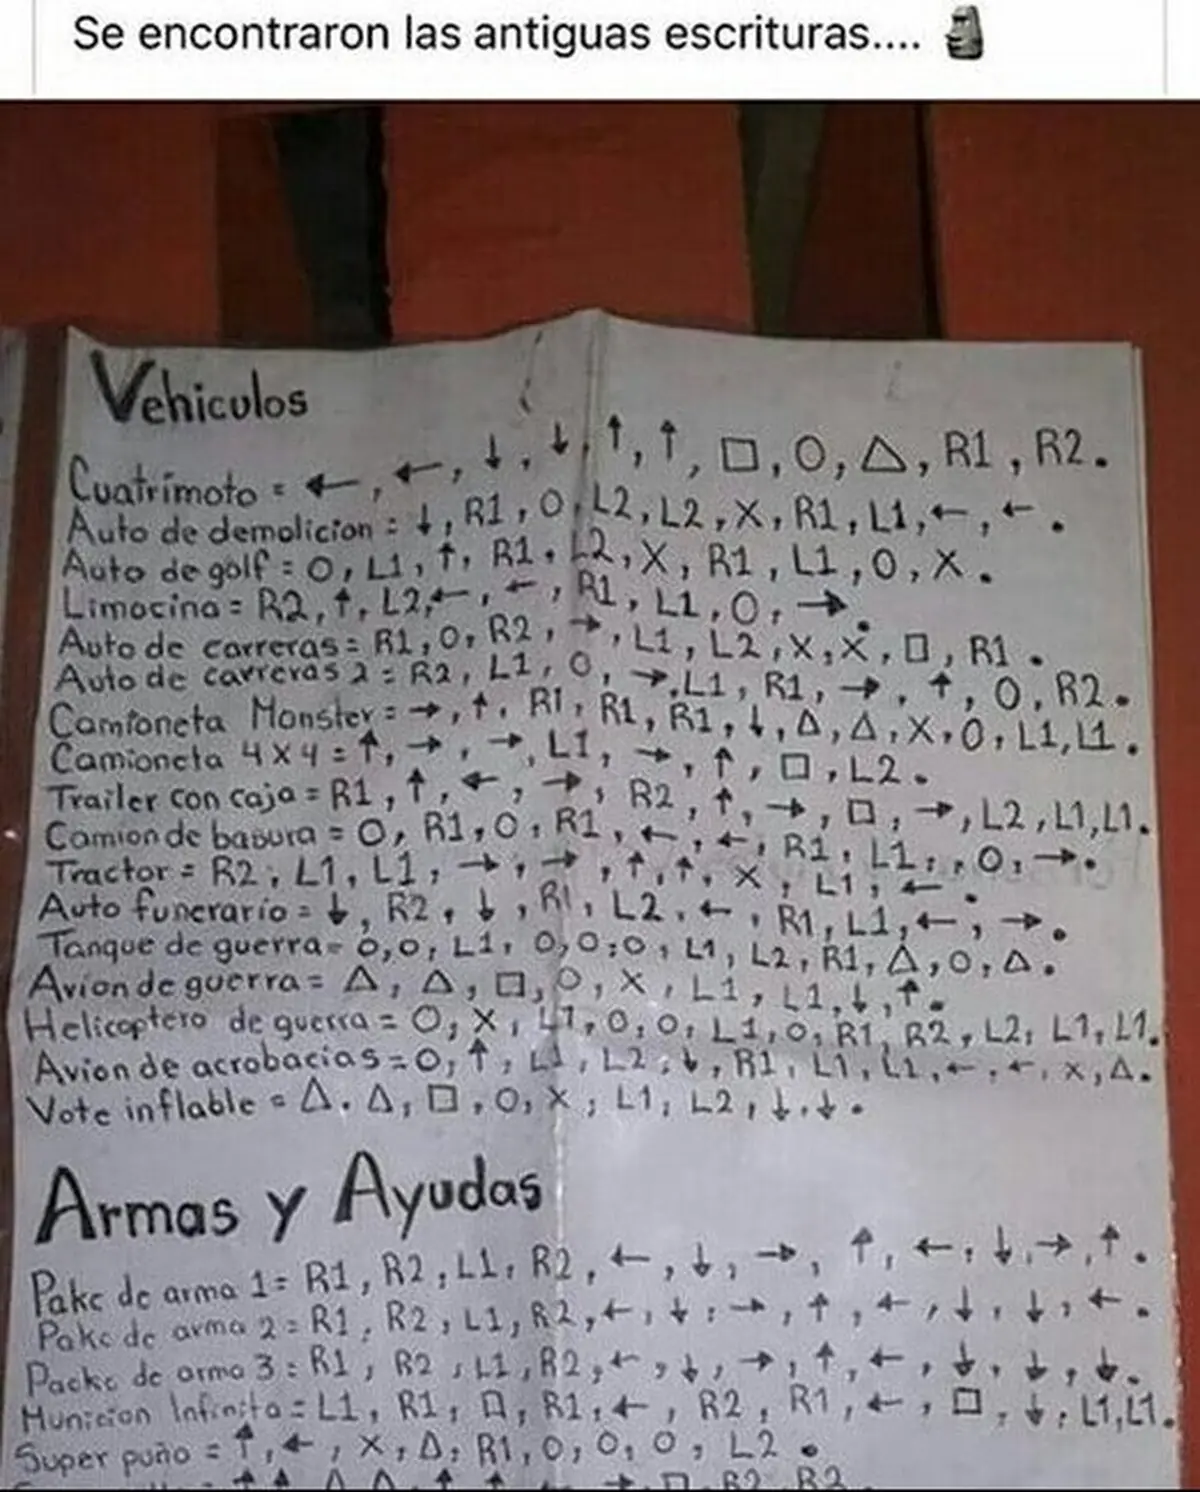 Se encontraron las antiguas escrituras.... 🗿
Vehiculos
Cuatrimoto = ←, ←, ↓, ↓, ↑, ↑, □, O, △, R1, R2.
Auto de demolicion = ↓, R1, O, L2, L2, X, R1, L1, ←, ←.
Auto de golf = O, L1, ↑, R1, L2, X, R1, L1, O, X.
Limocina = R2, ↑, L2, ←, ←, R1, L1, O, →.
Auto de carreras = R1, O, R2, →, L1, L2, X, X, □, R1.
Auto de carreras 2 = R2, L1, O, →, L1, R1, →, ↑, O, R2.
Camioneta Monster = →, ↑, R1, R1, R1, ↓, △, △, X, O, L1, L1.
Camioneta 4X4 = ↑, →, →, L1, →, ↑, □, L2.
Trailer con caja = R1, ↑, ←, →, R2, ↑, →, □, →, L2, L1, L1.
Camion de basura = O, R1, O, R1, ←, ←, R1, L1, , O, →.
Tractor = R2, L1, L1, →, →, ↑, ↑, X, L1, ←.
Auto funerario = ↓, R2, ↓, R1, L2, ←, R1, L1, ←, →.
Tanque de guerra = O, O, L1, O, O, O, L1, L2, R1, △, O, △.
Avion de guerra = △, △, □, O, X, L1, L1, ↓, ↑.
Helicoptero de guerra = O, X, L1, O, O, L1, O, R1, R2, L2, L1, L1.
Avion de acrobacias = O, ↑, L1, L2, ↓, R1, L1, L1, ←, ←, X, △.
Vote inflable = △, △, □, O, X, L1, L2, ↓, ↓.
Armas y Ayudas
Pake de arma 1 = R1, R2, L1, R2, ←, ↓, →, ↑, ←, ↓, →, ↑.
Pake de arma 2 = R1, R2, L1, R2, ←, ↓, →, ↑, ←, ↓, ↓, ←.
Packe de arma 3 = R1, R2, L1, R2, ←, ↓, →, ↑, ←, ↓, ↓, ↓.
Municion Infinita = L1, R1, □, R1, ←, R2, R1, ←, □, ↓, L1, L1.
Super puño = ↑, ←, X, △, R1, O, O, O, L2.